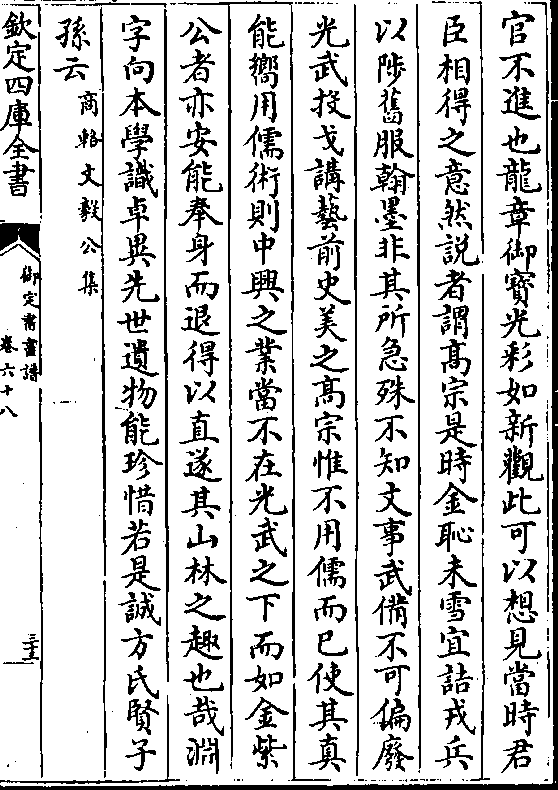 官不進也龍章御寶光彩如新觀此可以想見當時君
臣相得之意然説者謂髙宗是時金恥未雪宜詰戎兵
以陟舊服翰墨非其所急殊不知文事武備不可偏廢
光武投戈講藝前史美之髙宗惟不用儒而已使其真
能嚮用儒術則中興之業當不在光武之下而如金紫
公者亦安能奉身而退得以直遂其山林之趣也哉淵
字向本學識卓異先世遺物能珍惜若是誠方氏賢子
孫云
商輅文毅公集
欽定四庫全書
御定書畫譜
卷六十八
三十五